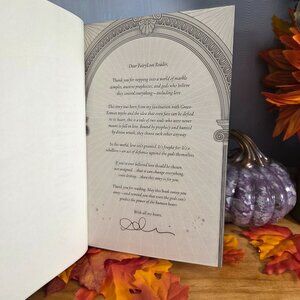 Dear FairyLoot Reader,
Thank you for stepping into a world of marble
temples, ancient prophecies, and gods who believe
they control everything—including love.
This story was born from my fascination with Greco-
Roman myths and the idea that even fate can be defied
by a heart.
this is a tale of two souls who were never
meant to fall in love. Bound by prophecy and hunted
by divine wrath, they choose each other anyway.
In this world, love isn't granted. It's fought for. It's a
rebellion—an act of defiance against the gods themselves.
If you've ever believed love should be
not assigned, that it can change everything,
even destiny, then this story is for you.
Thank you for reading. May this book sweep you
away—and remind you that even the gods can't
predict the power of the human heart.
With all my heart,